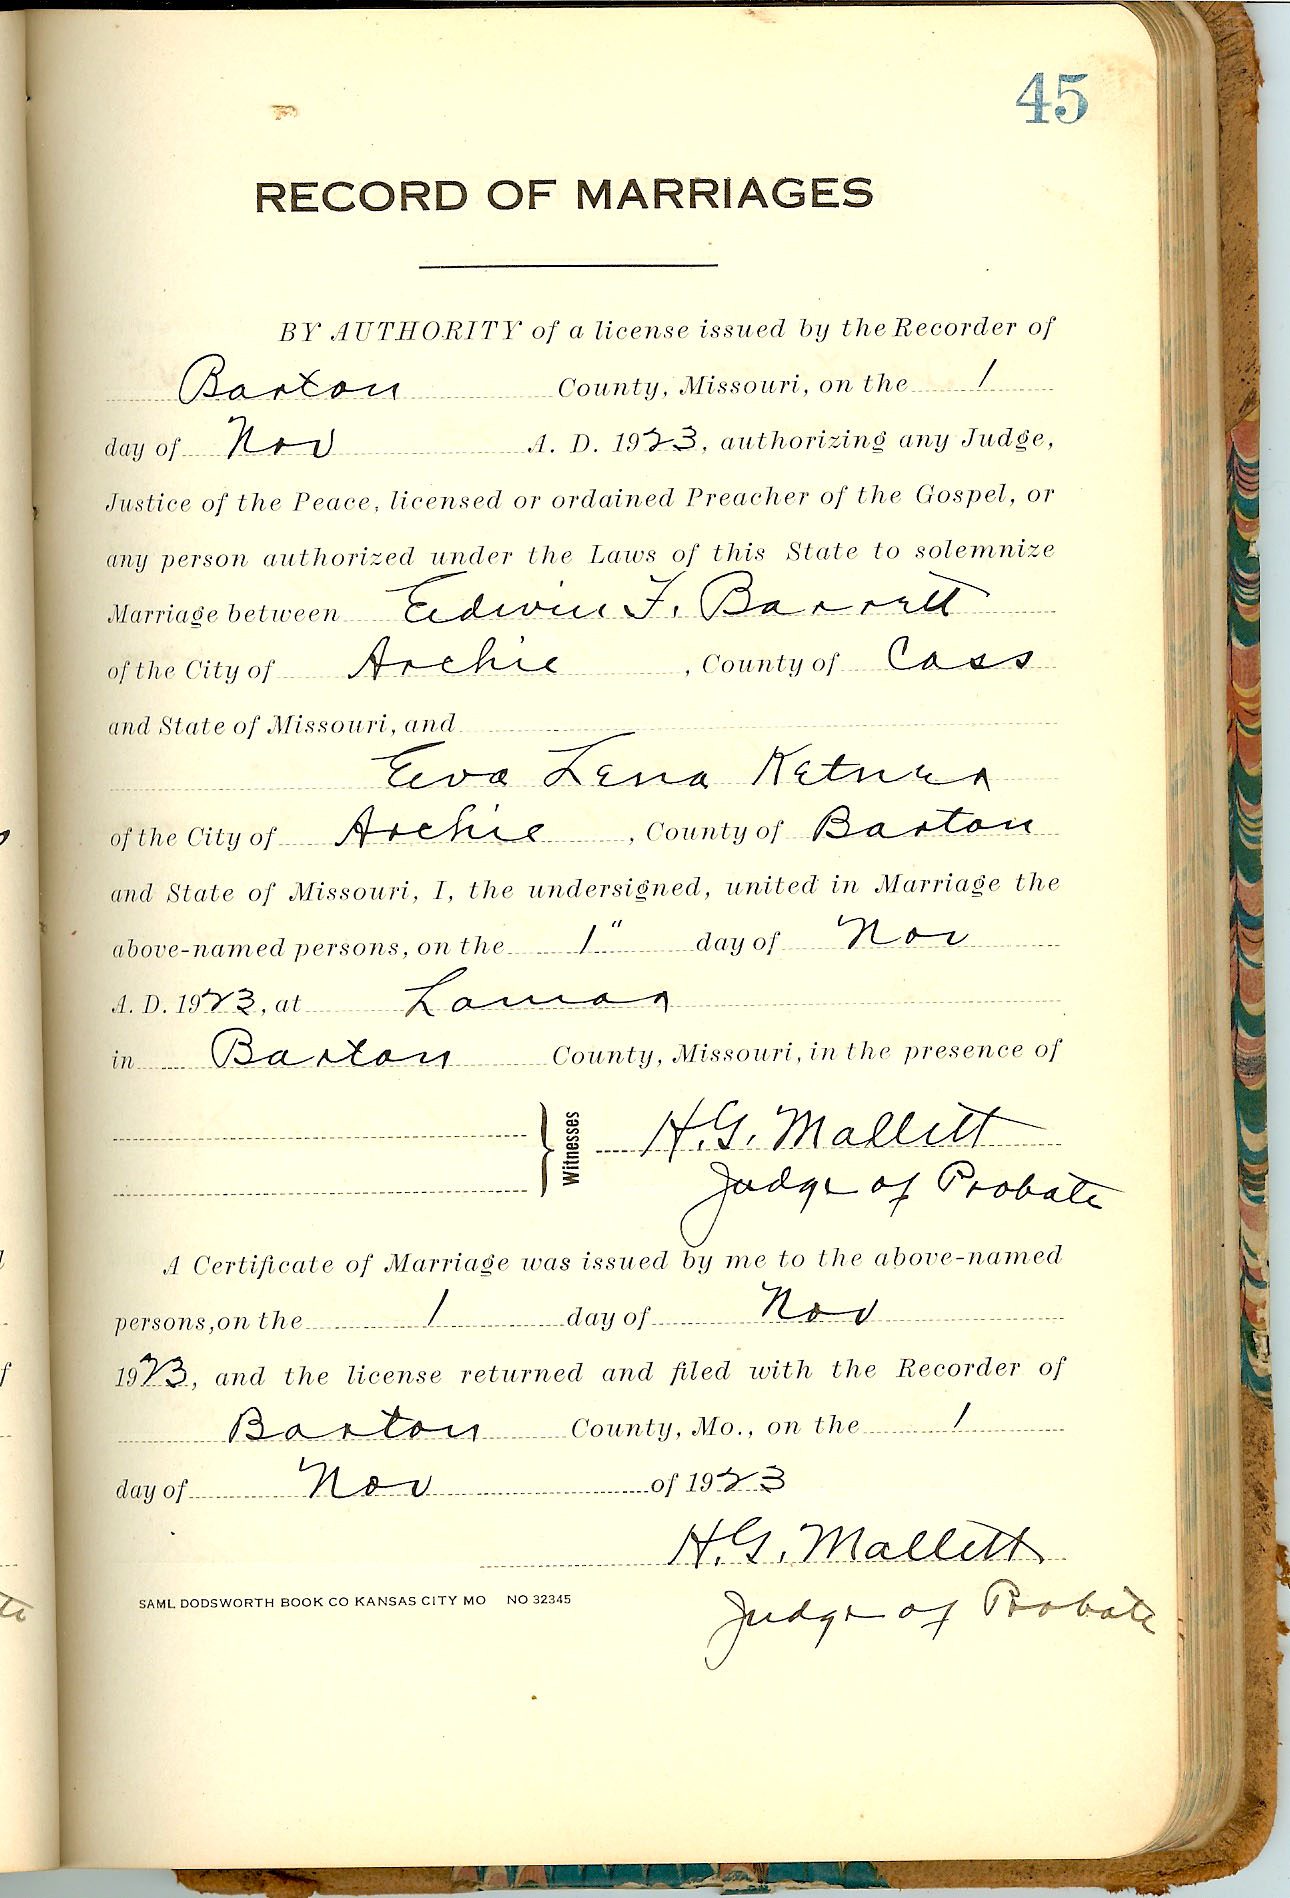 45
RECORD OF MARRIAGES
BY AUTHORITY of a license issued by the Recorder of
Barton County, Missouri, on the 1
day of Nov A. D. 1923, authorizing any Judge,
Justice of the Peace, licensed or ordained Preacher of the Gospel, or
any person authorized under the Laws of this State to solemnize
Marriage between Edwin F. Barrett
of the City of Archie, County of Cass
and State of Missouri, and
Eva Lena Ketner
of the City of Archie, County of Barton
and State of Missouri, I, the undersigned, united in Marriage the
above-named persons, on the 1" day of Nov
A. D. 1923, at Lamar
in Barton County, Missouri, in the presence of
Witnesses H. G. Mallett
Judge of Probate
A Certificate of Marriage was issued by me to the above-named
persons, on the 1 day of Nov
1923, and the license returned and filed with the Recorder of
Barton County, Mo., on the 1
day of Nov of 1923
H. G. Mallett
SAML DODSWORTH BOOK CO KANSAS CITY MO NO 32345
Judge of Probate